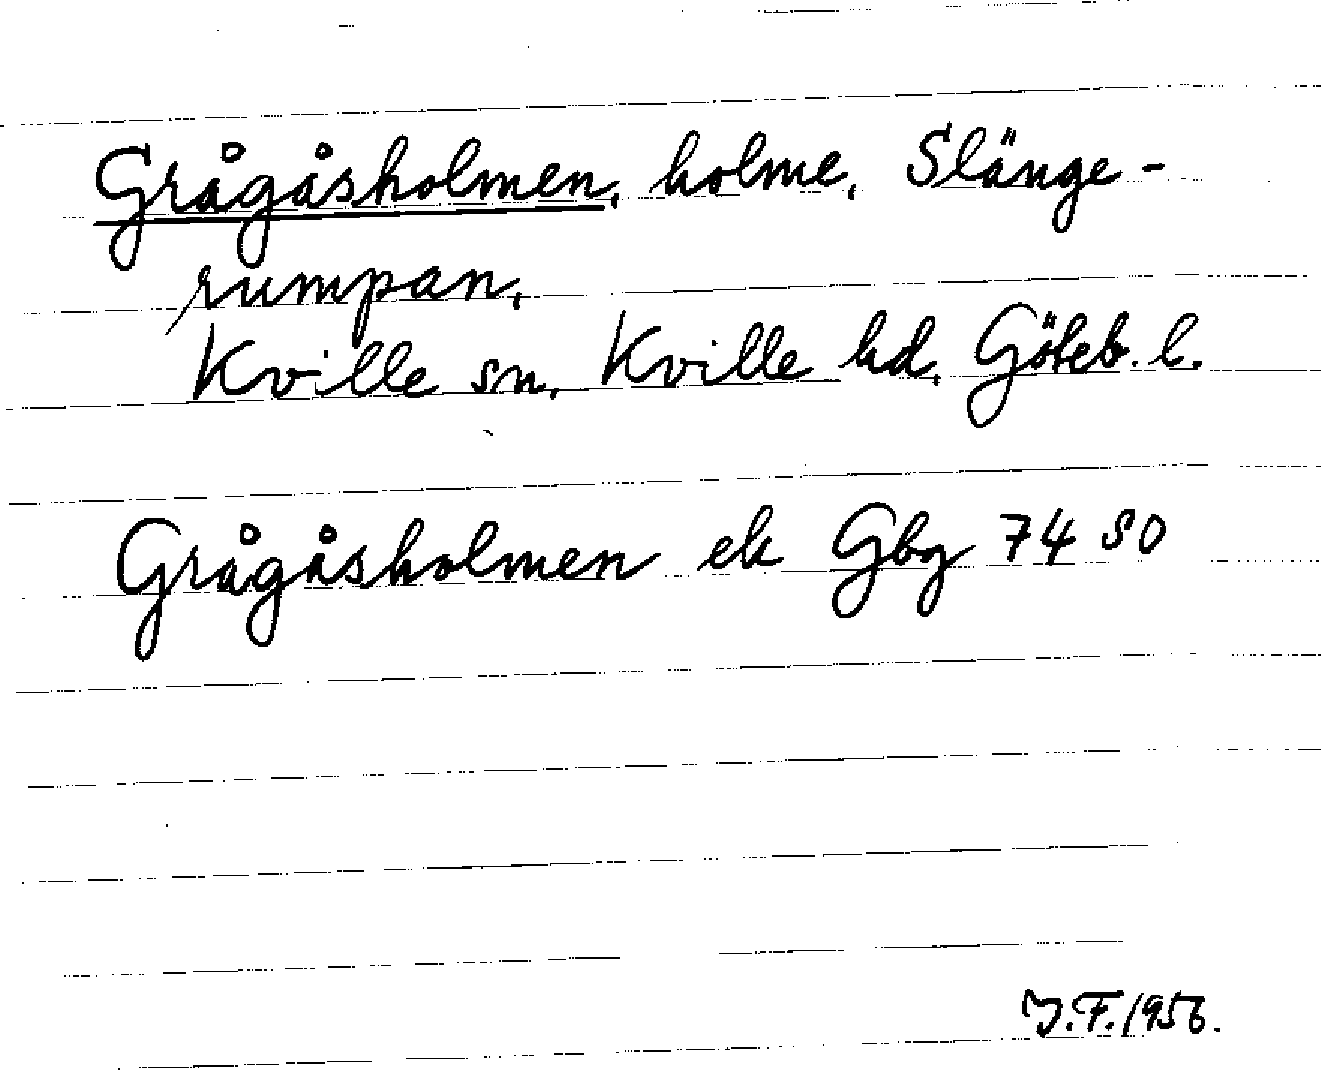 Grågåsholmen, holme, Slänge-
rumpan,
Kville sn, Kville hd, Göteb. l.
Grågåsholmen ek Gbg 74 SO
J.F. 1956.